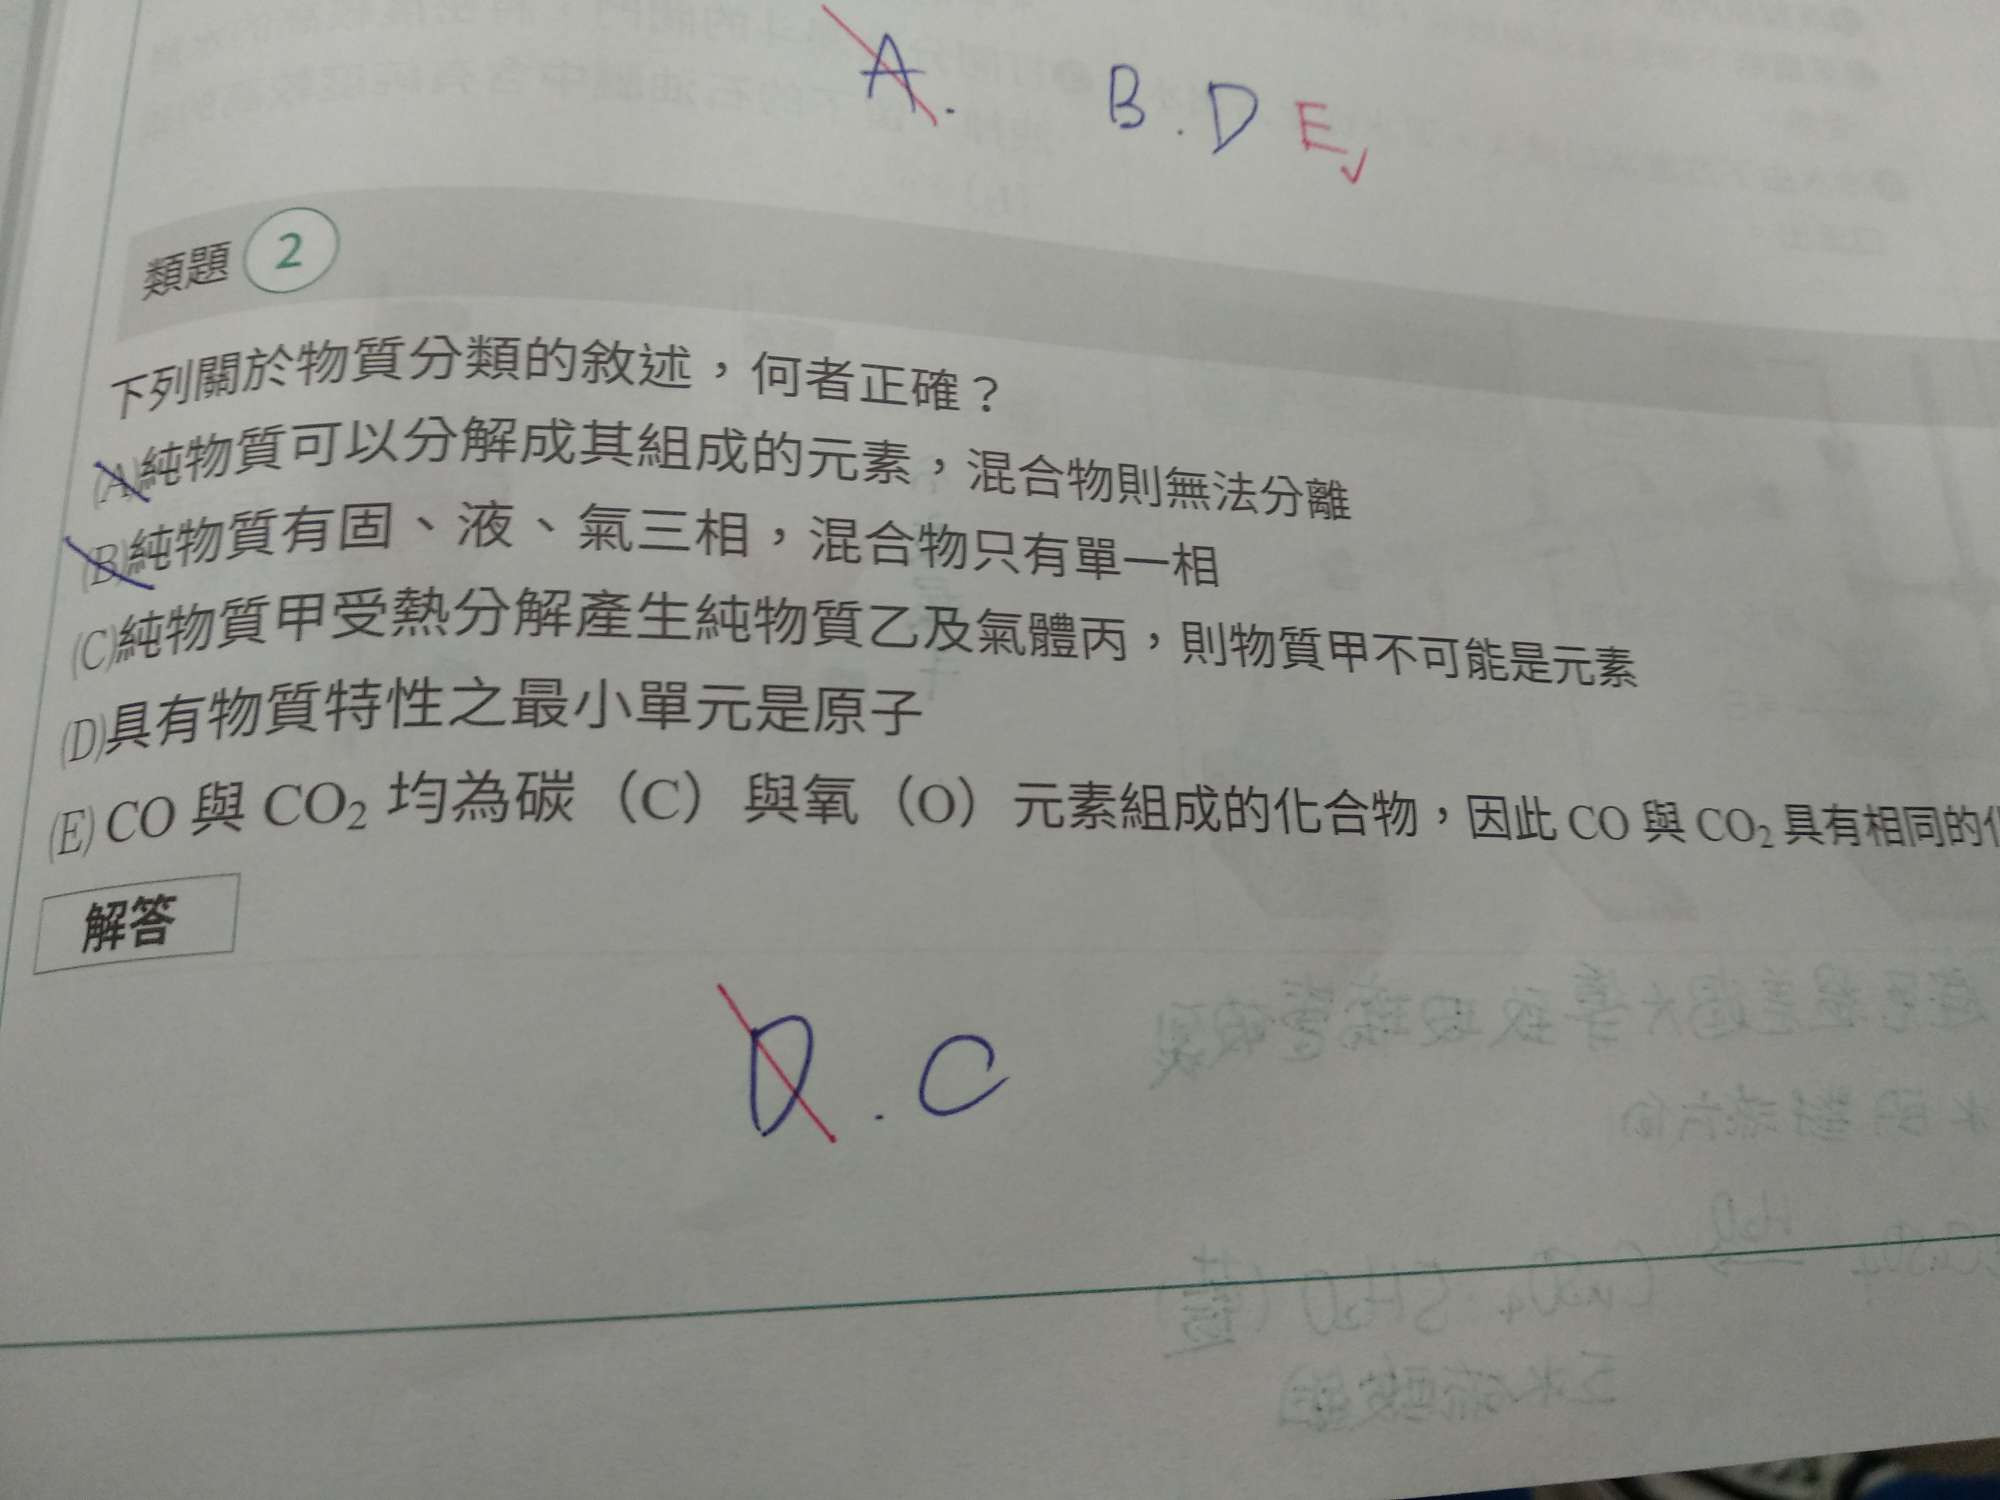 A. B. D E✓
類題 2
下列關於物質分類的敘述，何者正確？
(A)純物質可以分解成其組成的元素，混合物則無法分離
(B)純物質有固、液、氣三相，混合物只有單一相
(C)純物質甲受熱分解產生純物質乙及氣體丙，則物質甲不可能是元素
(D)具有物質特性之最小單元是原子
(E) CO 與 CO₂ 均為碳（C）與氧（O）元素組成的化合物，因此 CO 與 CO₂ 具有相同的
解答
D . C